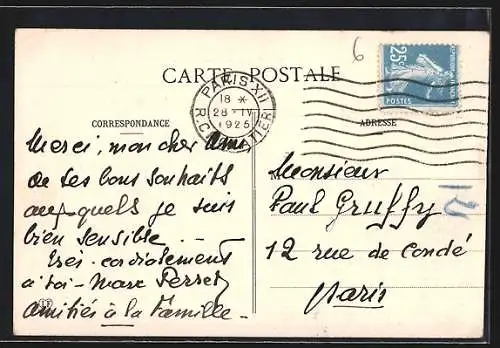 6
CARTE POSTALE
25c
POSTES
PARIS XII
18 X
28 - IV
1925
CORRESPONDANCE
ADRESSE
Merci, mon cher Ami
de tes bons souhaits
auxquels je suis
bien sensible -
Très cordialement
à toi - Marc Perret
amitiés à la Famille -
Monsieur
Paul Gruffy
12 rue de Condé
Paris